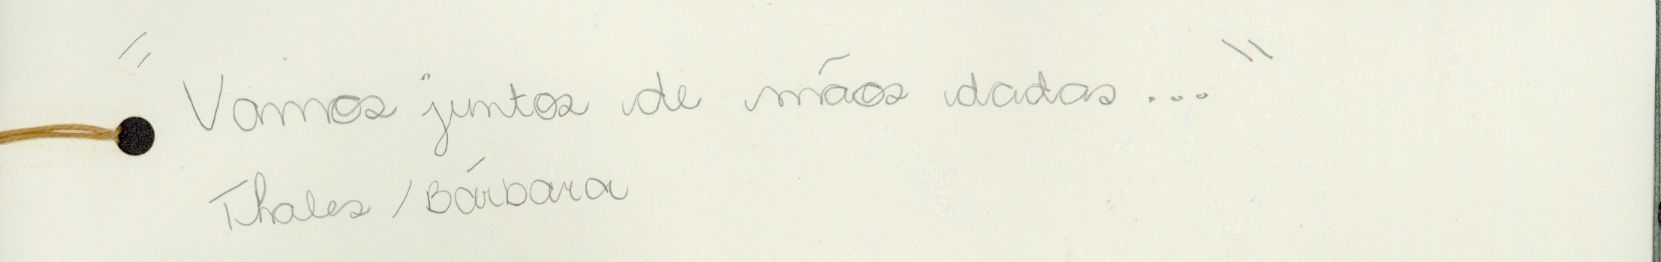 "Vamos juntos de mãos dadas..."
Thales / Bárbara